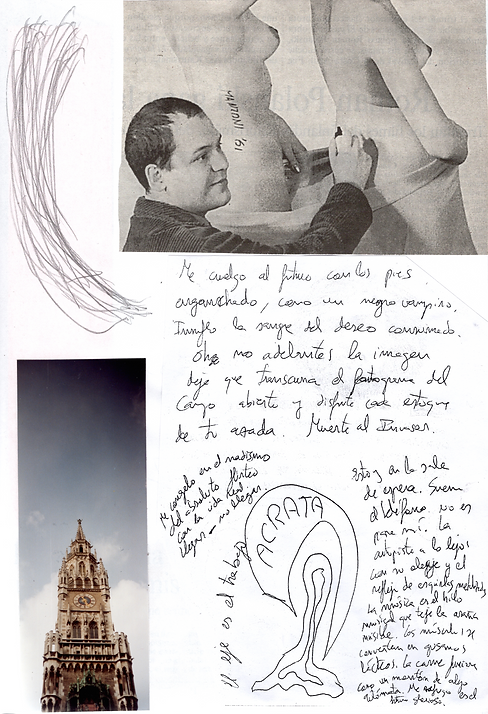 MANZONI '61
Me cuelgo al futuro con los pies
enganchado, como un negro vampiro.
Irrumpo la sangre del deseo consumado.
Oh no adelantes la imagen
deja que transcurra el fotograma del
campo abierto y disfruta cada estoque
de tu azada. Muerte al Invasor.
Me congelo en el nadismo
del absoluto flirteo
con la vida real.
llegar - no llegar.
El eje es el trabajo
ACRATA
Estoy en la sala
de espera. Suena
el teléfono. no es
para mí. La
autopista a lo lejos
con su oleaje y el
reflejo de
La música es el hilo
musical que teje la araña
invisible. Los músculos se
convierten en gusanos
lácteos. La carne
como un montón de algo
Me refugio en el